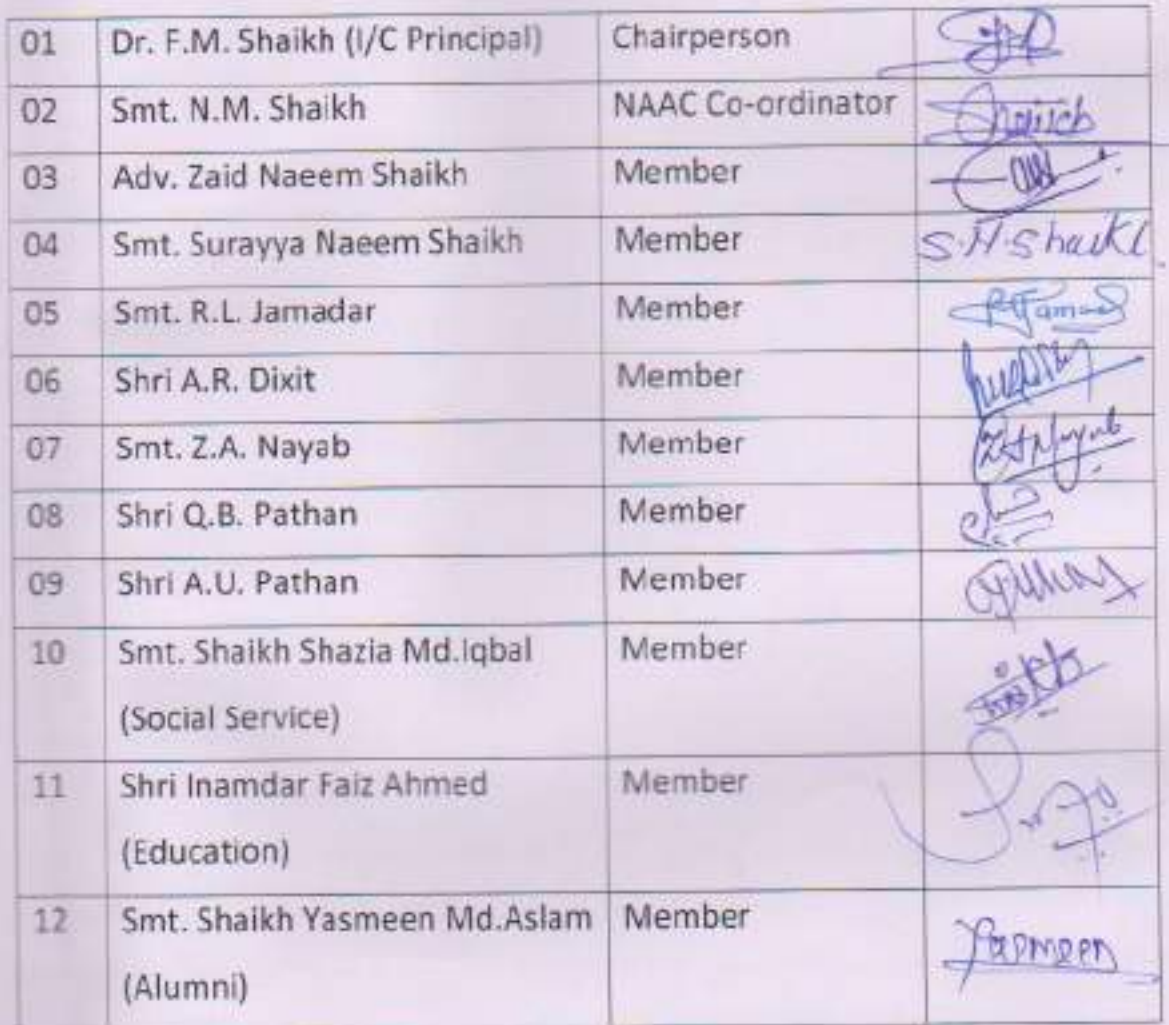 01 Dr. F.M. Shaikh (I/C Principal) Chairperson
02 Smt. N.M. Shaikh NAAC Co-ordinator Shaikh
03 Adv. Zaid Naeem Shaikh Member
04 Smt. Surayya Naeem Shaikh Member S.N.Shaikh
05 Smt. R.L. Jamadar Member
06 Shri A.R. Dixit Member
07 Smt. Z.A. Nayab Member ZANayab
08 Shri Q.B. Pathan Member
09 Shri A.U. Pathan Member
10 Smt. Shaikh Shazia Md.Iqbal Member
(Social Service)
11 Shri Inamdar Faiz Ahmed Member
(Education)
12 Smt. Shaikh Yasmeen Md.Aslam Member Yasmeen
(Alumni)